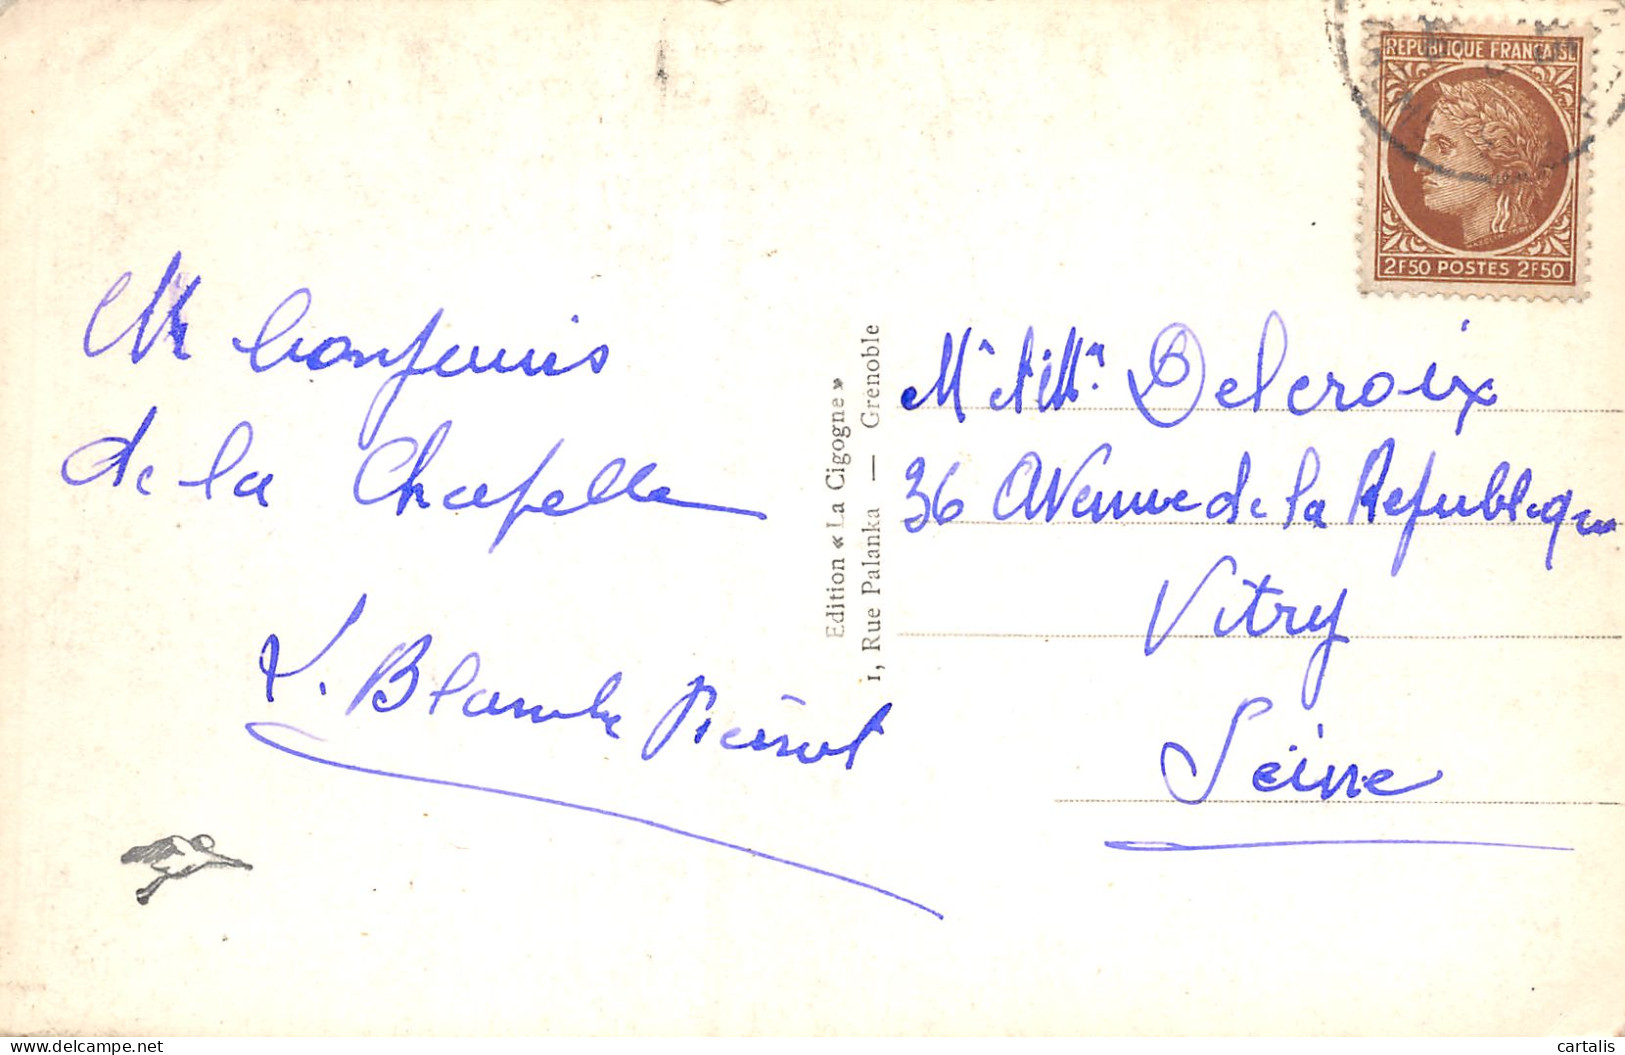 Un bonjour
de la Chapelle
L. Blanche Pierrot
Edition « La Cigogne »
1, Rue Palanka — Grenoble
REPUBLIQUE FRANÇAISE
2F50 POSTES 2F50
Mr et Mme Delcroix
36 Avenue de la Republique
Vitry
Seine
cartalis